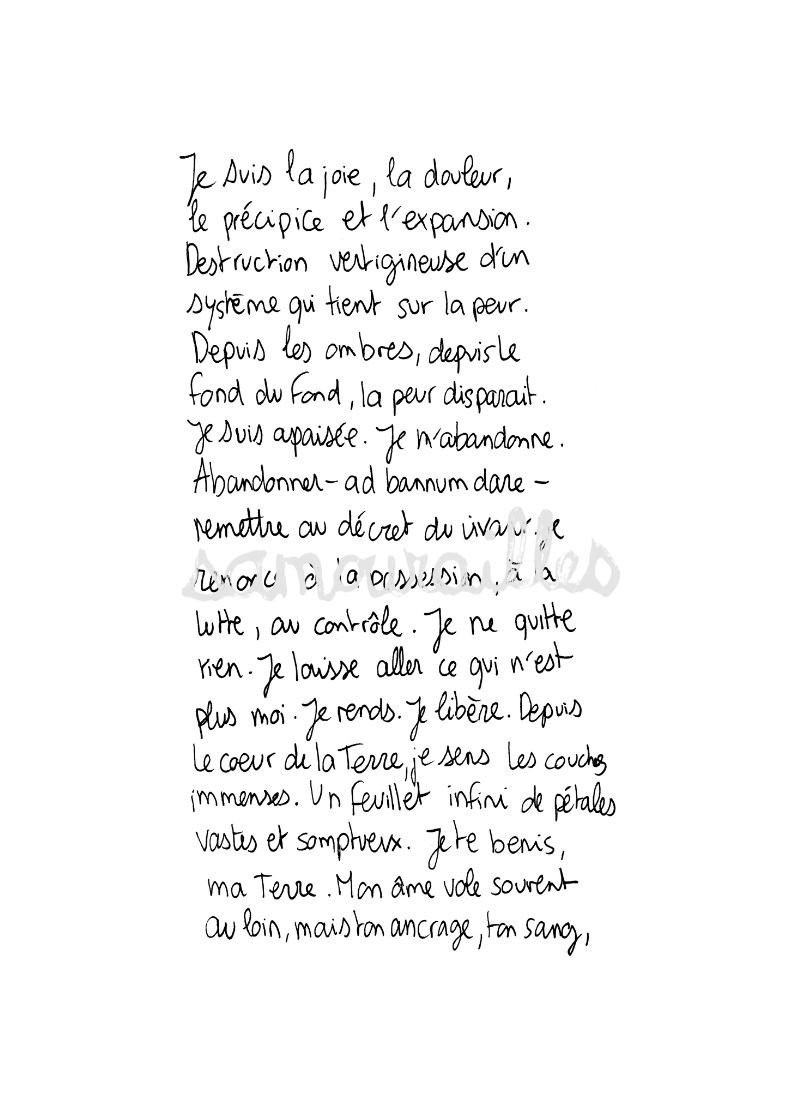 Je suis la joie, la douleur,
le précipice et l'expansion.
Destruction vertigineuse d'un
système qui tient sur la peur.
Depuis les ombres, depuis le
fond du fond, la peur disparait.
Je suis apaisée. Je m'abandonne.
Abandonner - ad bannum dare -
remettre au décret du vivant. Je
samourailles
renonce à la possession, à la
lutte, au contrôle. Je ne quitte
rien. Je laisse aller ce qui n'est
plus moi. Je rends. Je libère. Depuis
le coeur de la Terre, je sens les couches
immenses. Un feuillet infini de pétales
vastes et somptueux. Je te benis,
ma Terre. Mon âme vole souvent
au loin, mais ton ancrage, ton sang,